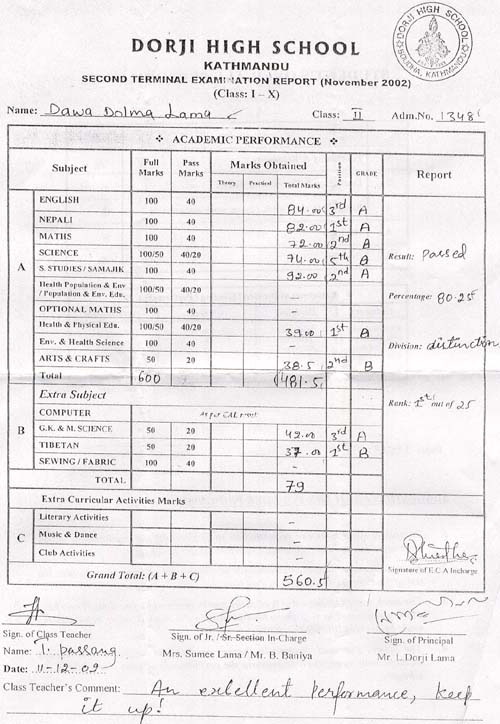 DORJI HIGH SCHOOL
BOUDHA, KATHMANDU
DORJI HIGH SCHOOL
KATHMANDU
SECOND TERMINAL EXAMINATION REPORT (November 2002)
(Class: I – X)
Name: Dawa Dolma Lama Class: II Adm.No. 1348
ACADEMIC PERFORMANCE
Subject Full Marks Pass Marks Marks Obtained Position GRADE Report
Theory Practical Total Marks
A
ENGLISH 100 40 84.00 3rd A
NEPALI 100 40 82.00 1st A
MATHS 100 40 72.00 2nd A
SCIENCE 100/50 40/20 74.00 5th A Result: Passed
S. STUDIES / SAMAJIK 100 40 92.00 2nd A
Health Population & Env / Population & Env. Edu. 100/50 40/20 – Percentage: 80.25
OPTIONAL MATHS 100 40 –
Health & Physical Edu. 100/50 40/20 39.00 1st A
Env. & Health Science 100 40 – Division: distinction
ARTS & CRAFTS 50 20 38.5 2nd B
Total 600 481.5
Extra Subject Rank: 1st out of 25
B
COMPUTER As per CAL
G.K. & M. SCIENCE 50 20 42.00 3rd A
TIBETAN 50 20 37.00 1st B
SEWING / FABRIC 100 40 –
TOTAL 79
Extra Curricular Activities Marks
C
Literary Activities –
Music & Dance –
Club Activities –
Signature of E.C.A Incharge
Grand Total: (A + B + C) 560.5
Sign. of Class Teacher Sign. of Jr. / Sr. Section In-Charge Sign. of Principal
Name: T. Passang Mrs. Sumee Lama / Mr. B. Baniya Mr. L. Dorji Lama
Date: 11-12-02
Class Teacher's Comment: An excellent Performance, keep
it up!